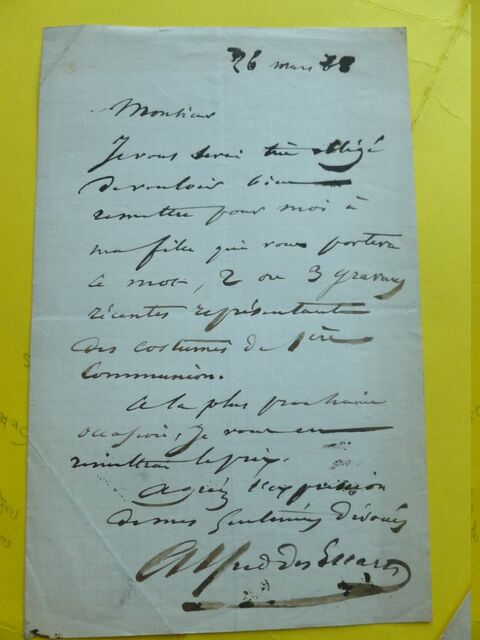 26 mars 78
Monsieur
Je vous serai très obligé
de vouloir bien
remettre pour moi à
ma fille qui vous portera
ce mot, 2 ou 3 gravures
récentes représentant
des costumes de 1ère
Communion.
A la plus prochaine
occasion, je vous en
remettrai le prix.
Agréez l'expression
de mes sentiments dévoués
Alfred des Essarts